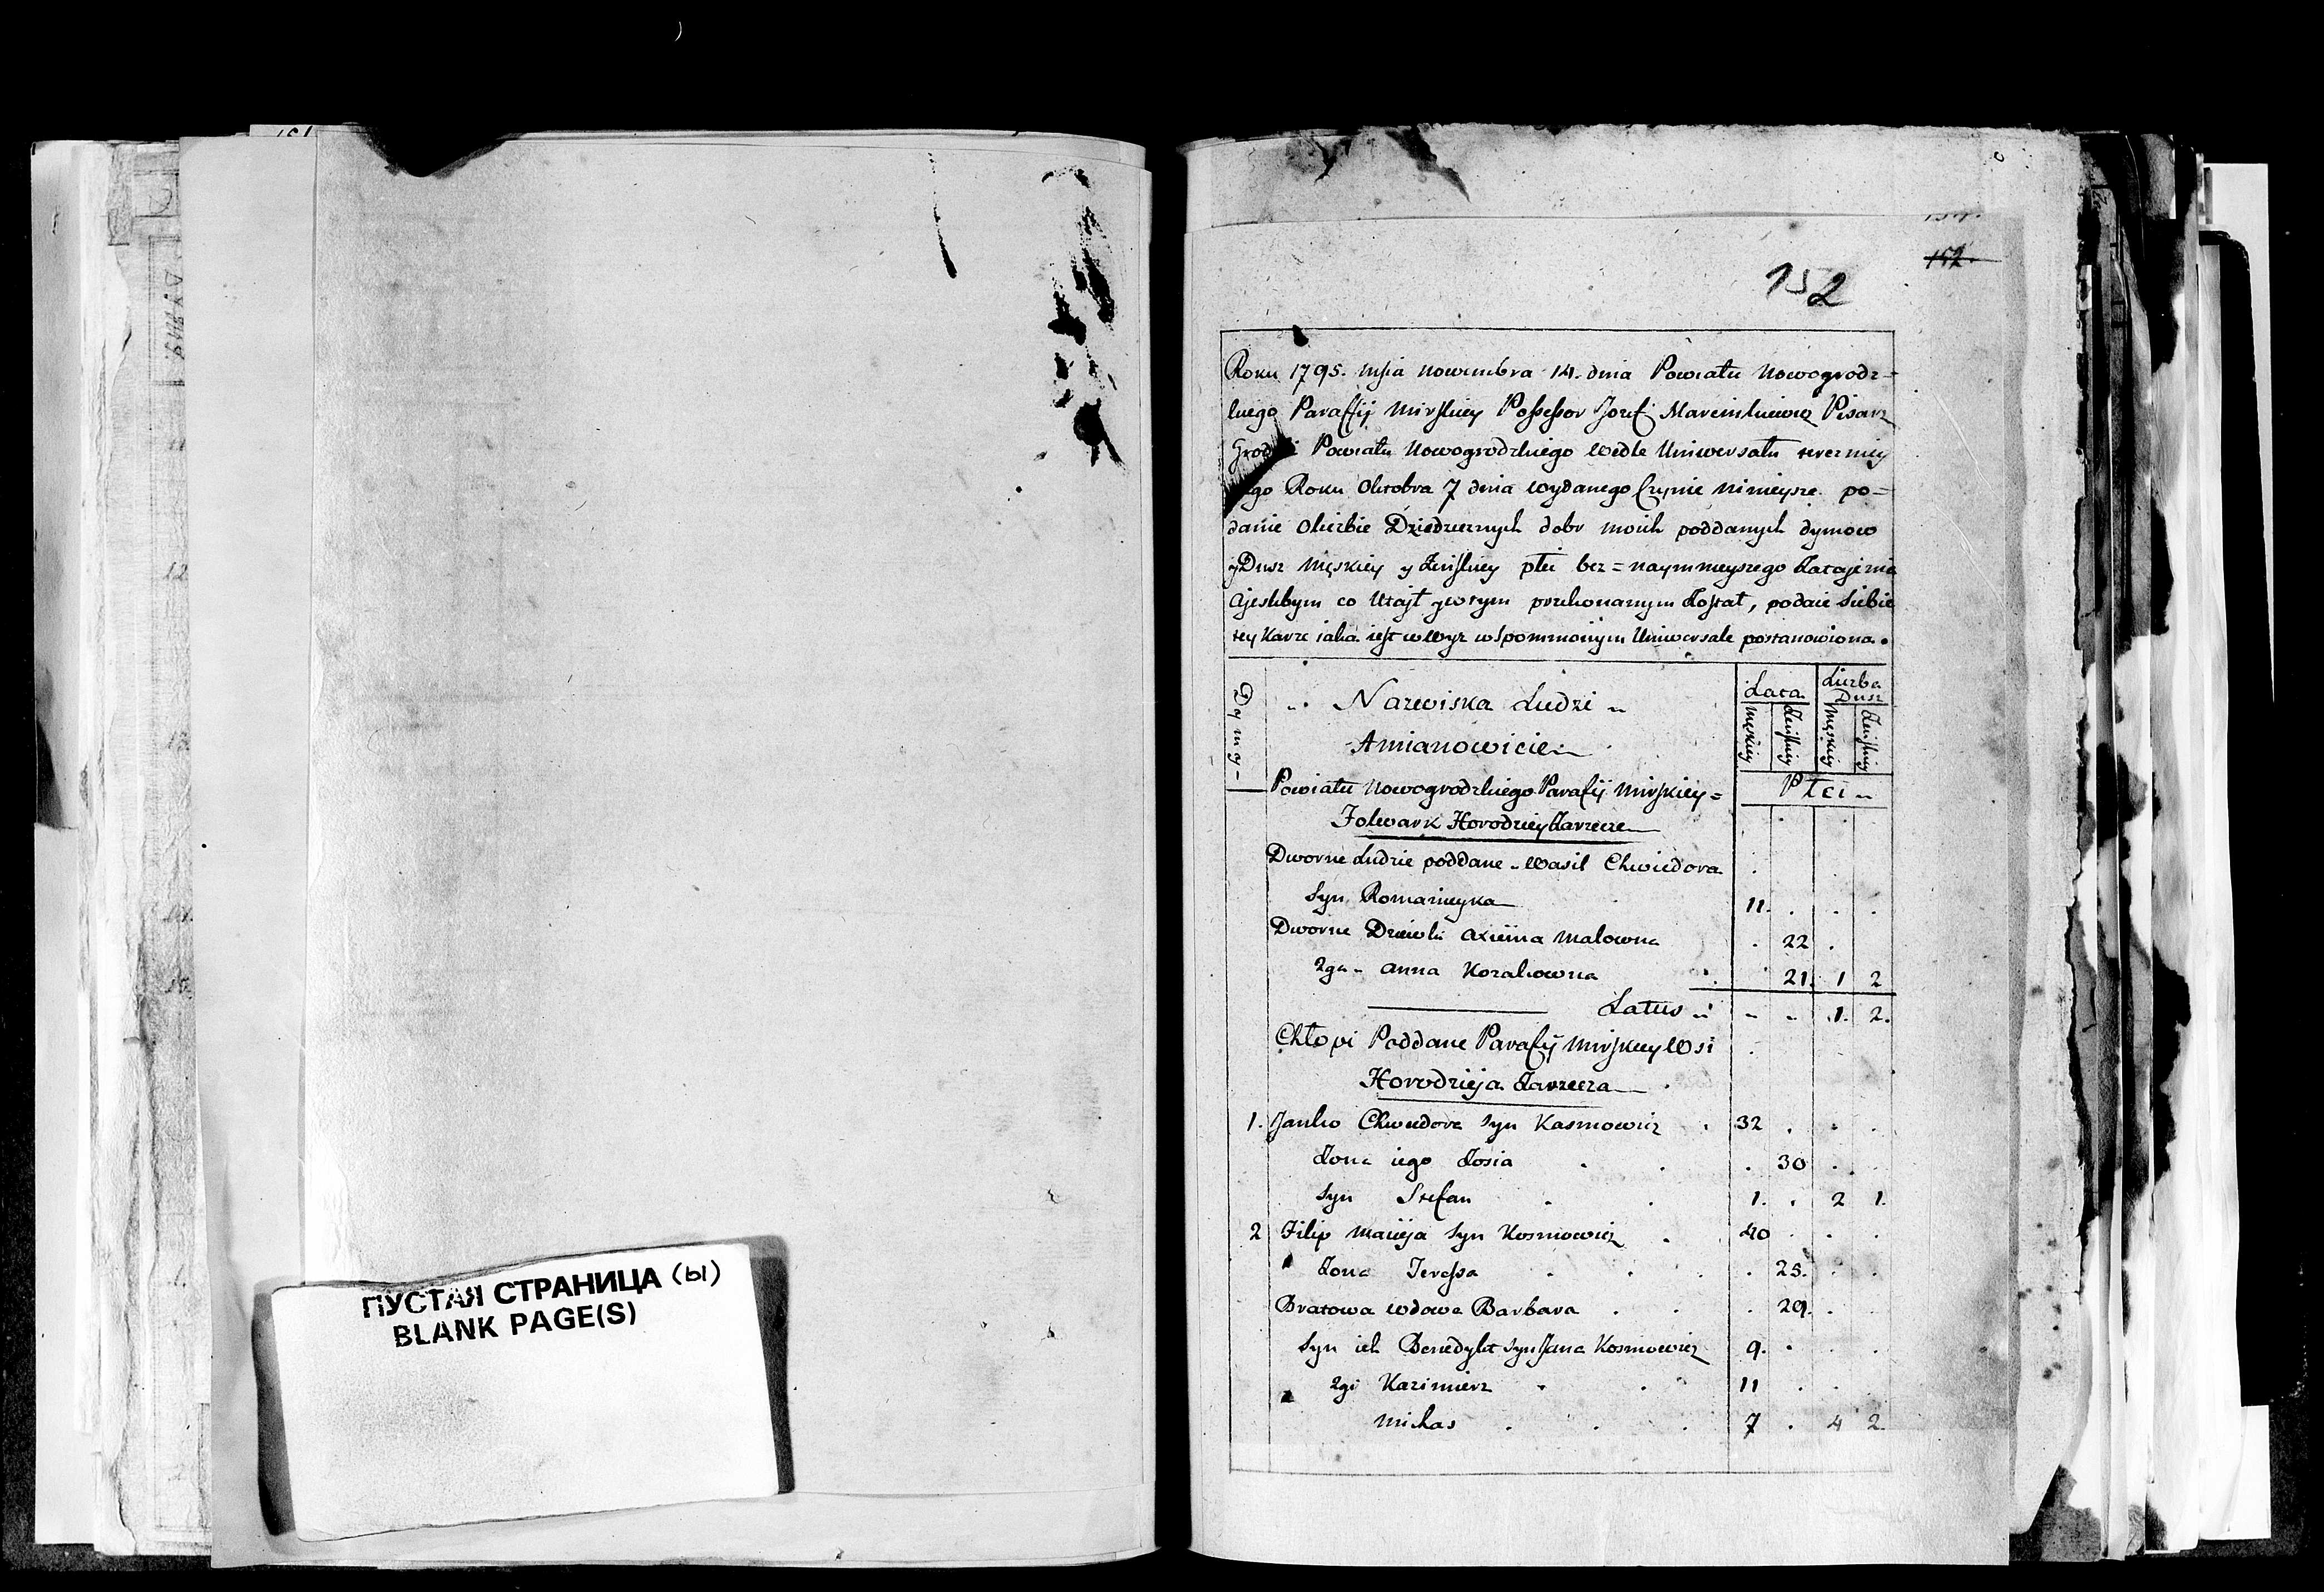 ПУСТАЯ СТРАНИЦА (Ы)
BLANK PAGE(S)
152
152.
Roku 1795. msia Nowembra 14. dnia Powiatu Nowogrodz=
kiego Paraffij Mirskiey Possessor Jozef Marcinkiewicz Pisarz
Grodzki Powiatu Nowogrodzkiego wedle Uniwersału
go Roku Oktobra 7 dnia wydanego Czynie ninieysze po=
danie o liczbie Dziedzicznych dobr moich poddanych dymow
y Dusz Męskiey y Żeńskiey płci bez=naymnieyszego Zatajenia
a jeslibym co Utajł y w tym przekonanym Został, podaie siebie
tey Karze iaka iest w wyz wspomnionym Uniwersale postanowiona.
Dymy
Nazwiska Ludzi
Lata
Liczba Dusz
Amianowicie
Męskiey
Żeńskiey
Męskiey
Żeńskiey
Powiatu Nowogrodzkiego Parafij Mirskiey=
Płci
Folwark Horodziey Zarzecze
Dworne Ludzie poddane Wasil Chwiedora
Syn Romanieyka 11.
Dworne Dziewki Axienia Malowna 22
2ga Anna Kozakowna 21. 1 2
Latus 1. 2.
Chłopi Poddane Parafij Mirskiey Wsi
Horodzieja Zarzecza
1. Janko Chwiedora Syn Kasmowicz 32
Żona iego Zosia 30
Syn Stefan 1. 2 1.
2 Filip Macieja Syn Kosmowicz 40
Żona Teressa 25.
Bratowa wdowa Barbara 29.
Syn ich Benedykt Syn Jana Kosmowicz 9.
2gi Kazimierz 11
Michas 7 4 2